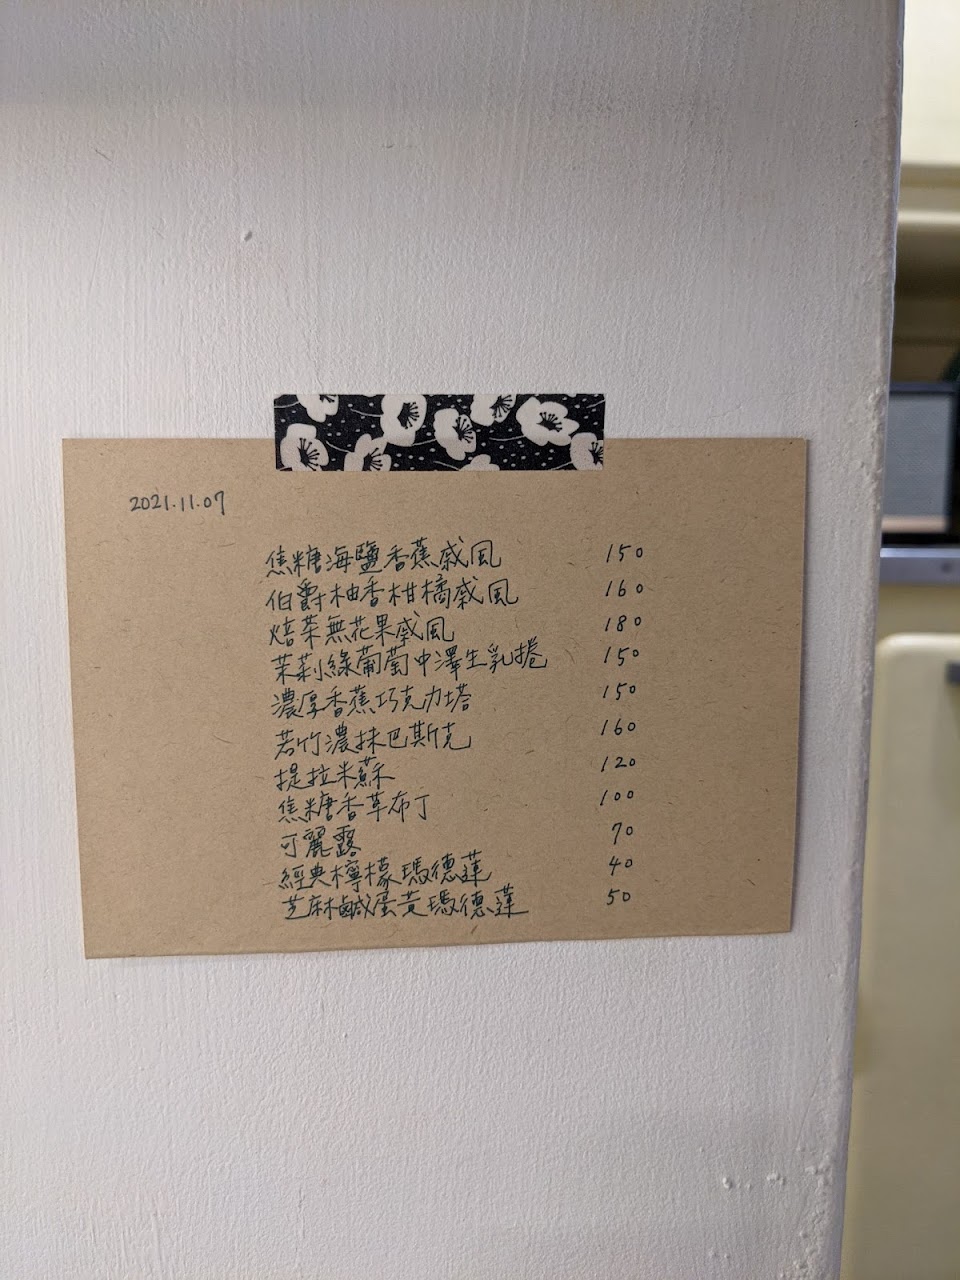 2021.11.07
焦糖海鹽香蕉戚風 150
伯爵柚香柑橘戚風 160
焙茶無花果戚風 180
茉莉綠葡萄中澤生乳捲 150
濃厚香蕉巧克力塔 150
若竹濃抹巴斯克 160
提拉米蘇 120
焦糖香草布丁 100
可麗露 70
經典檸檬瑪德蓮 40
芝麻鹹蛋黃瑪德蓮 50